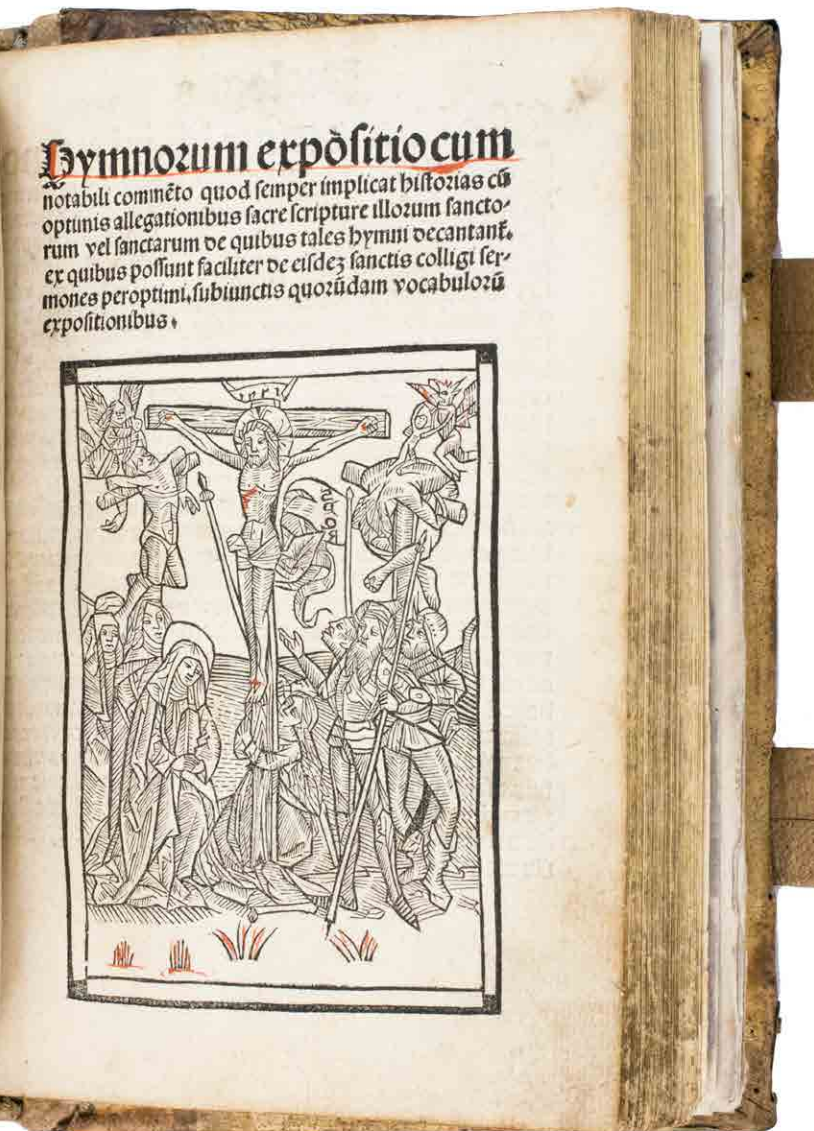 Hymnorum expositio cum
notabili commẽto quod semper implicat historias cũ
optimis allegationibus sacre scripture illorum sancto⸗
rum vel sanctarum de quibus tales hymni decantant᷑.
ex quibus possunt faciliter de eisdeʒ sanctis colligi ser⸗
mones peroptimi, subiunctis quorũdam vocabulorũ
expositionibus.